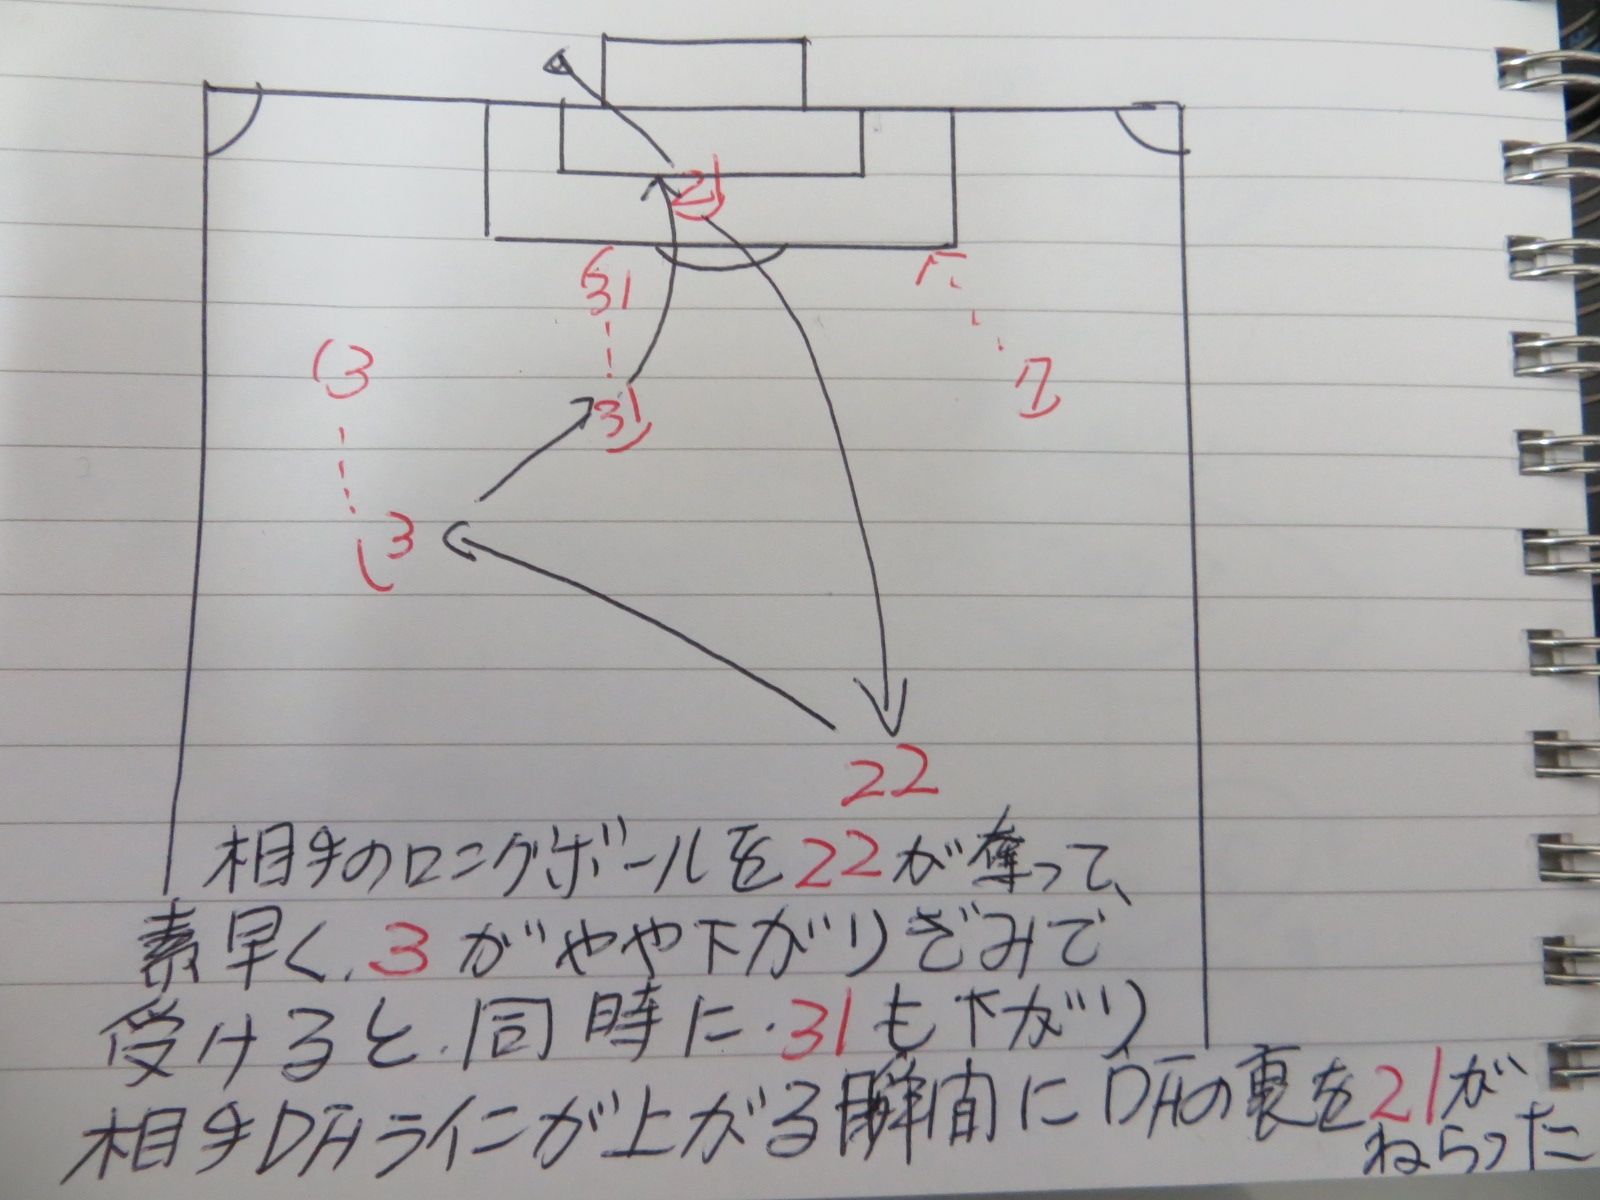 21
31
7
3
31
3
22
相手のロングボールを22が奪って、
素早く、3がやや下がりぎみで
受けると、同時に、31も下がり
相手DFラインが上がる瞬間にDFの裏を21が
ねらった